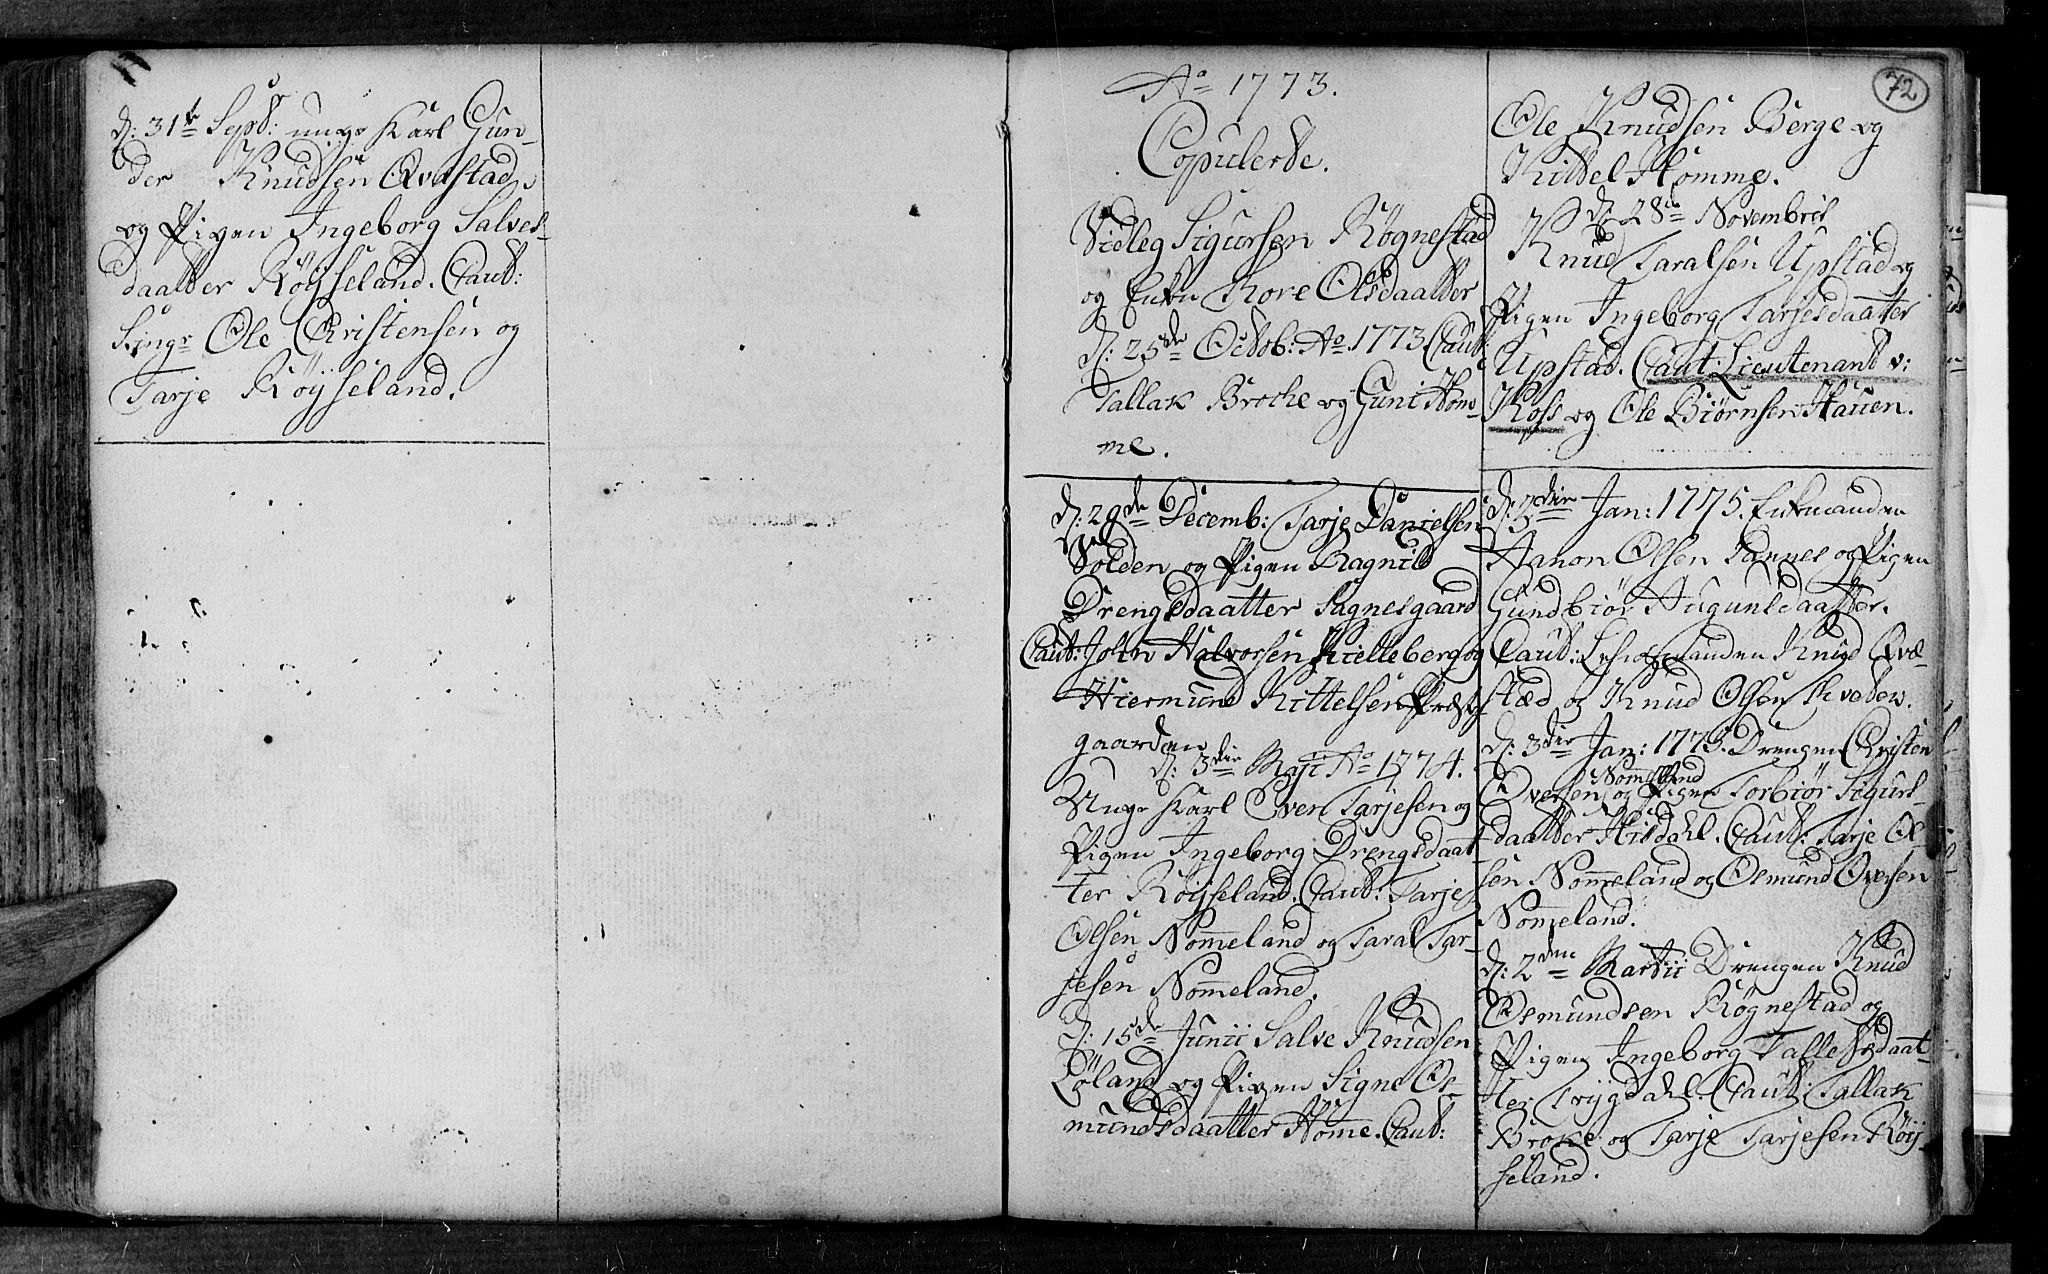 d: 31te Sept: unge Karl Gun-
der Knudsen Qvastad
og Pigen Ingeborg Salves-
daatter Röijseland. Caut:
Ole Christensen og
Tarje Röijseland.
Ao 1773.
Copulerde.
Vidleg Sigursen Røgnestad
og Enken Tore Olsdaatter
d: 25de Octob: Ao 1773. Caut:
Tallak Broche og Guni Hom-
me.
d: 29de Decemb: Tarje Danielsen
Volden og Pigen Ragnild
Drengsdaatter Sagnesgaard
Caut: John Halvorsen Kielleberg og
Hiermund Kittelsen Præste-
gaarden
d: 3die Maji Ao 1774.
Unge Karl Even Tarjesen og
Pigen Ingeborg Drengsdaat-
ter Röijseland. Caut: Tarje
Olsen Nom̄eland og Taral Tar-
jesen Nom̄eland.
d: 15de Junii Salve Knudsen
Løland og Pigen Signe Os-
mundsdaatter Hom̄e. Caut:
72
Ole Knudsen Berge og
Kittel Homme.
d: 28de Novembris
Knud Taralsen Upstad og
Pigen Ingeborg Tarjesdaatter
Upstad. Caut. Lieutenant v:
Koss og Ole Biørnsen Hauen.
d: 3die Jan: 1775. Enkemanden
Aanon Olsen Tannes og Pigen
Gundbiør Augunsdaatter.
Caut: Knud Qvæ-
stæd og Knud Olsen
d: 3die Jan: 1775. Drengen Christen
Nom̄eland
Oversen og Pigen Torbiør Sigurs-
daatter Hisdahl. Caut: Tarje Ol-
sen Nom̄eland og Osmund Oversen
Nom̄eland.
d: 2den Martii Drengen Knud
Osmundsen Røgnestad og
Pigen Ingeborg Tallefsdaat-
ter Trijgdahl. Caut: Tallak
Broke og Tarje Tarjesen Röij-
seland.